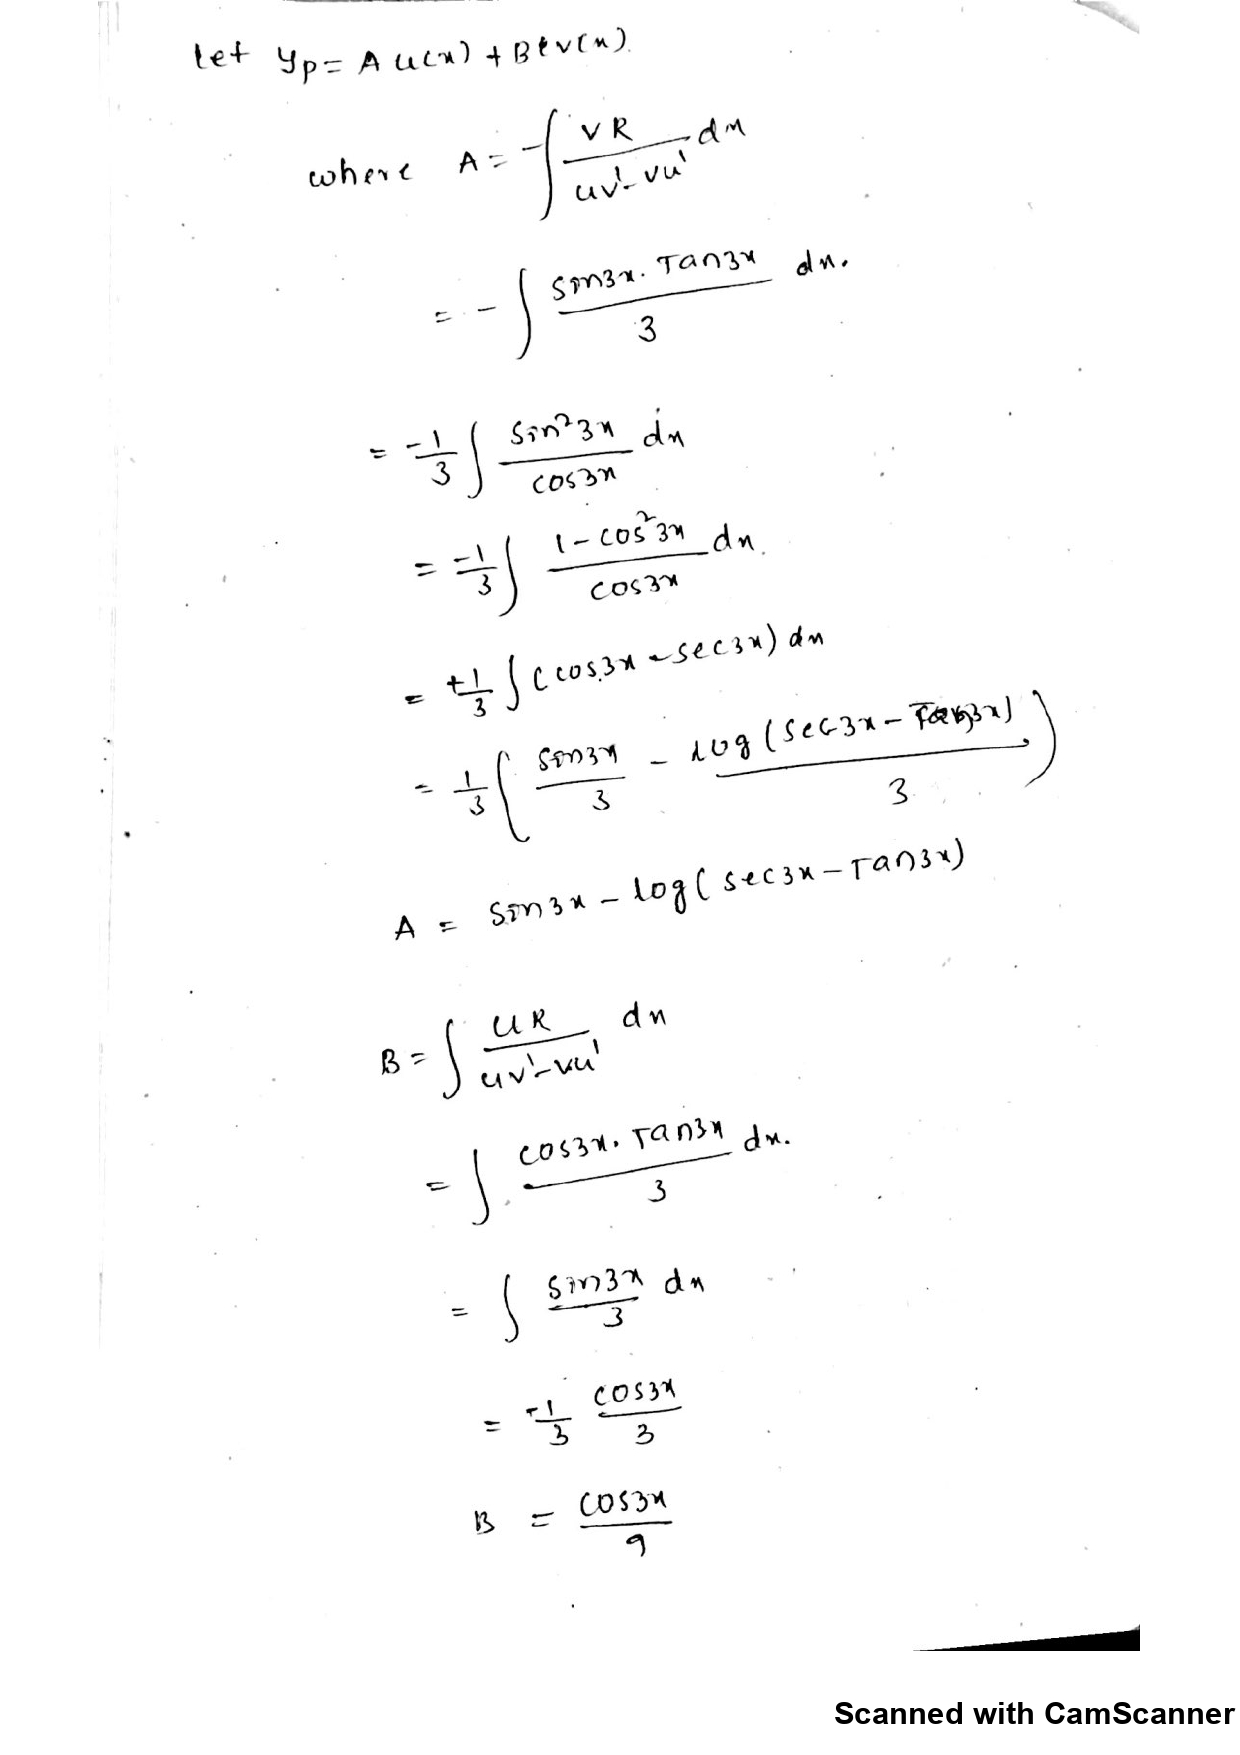 Let yp = A u(x) + B v(x).
where A = -∫ VR / (uv' - vu') dx
= - ∫ sin3x. Tan3x / 3 dx.
= -1/3 ∫ sin²3x / cos3x dx
= -1/3 ∫ 1 - cos²3x / cos3x dx.
= +1/3 ∫ (cos3x - sec3x) dx
= 1/3 ( sin3x / 3 - log(sec3x - Tan3x) / 3 )
A = sin3x - log(sec3x - Tan3x)
B = ∫ UR / (uv' - vu') dx
= ∫ cos3x. Tan3x / 3 dx.
= ∫ sin3x / 3 dx
= -1/3 cos3x / 3
B = cos3x / 9
Scanned with CamScanner